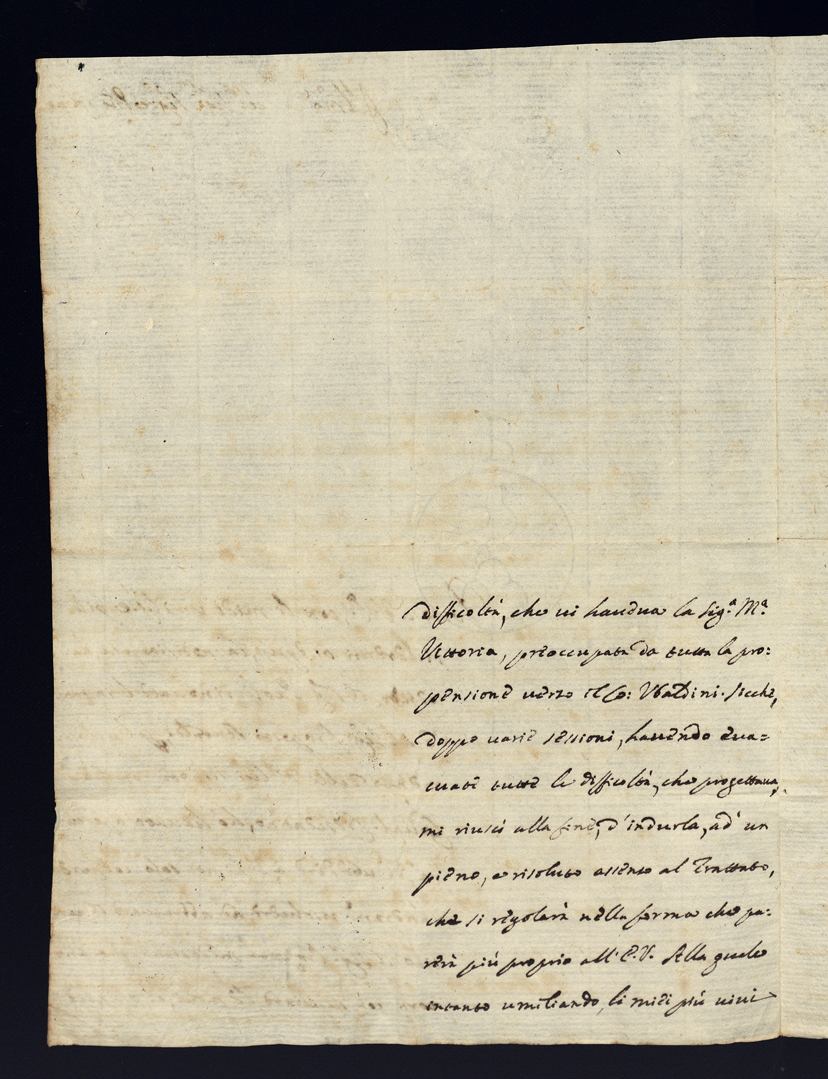 difficoltà, che vi haueua la Sig.ª M.ª
Vittoria, preoccupata da tutta la pro:
pensione uerso il Co: Vbaldini. Sicche,
doppo uarie sessioni, hauendo eua=
cuate tutte le difficoltà, che progettaua,
mi riusci alla fine, d'indurla, ad' un
pieno, e risoluto assenso al Trattato,
che si regolarà nella forma che pa:
rerà più proprio all' E.V. Alla quale
intanto umiliando, li miei più uiui